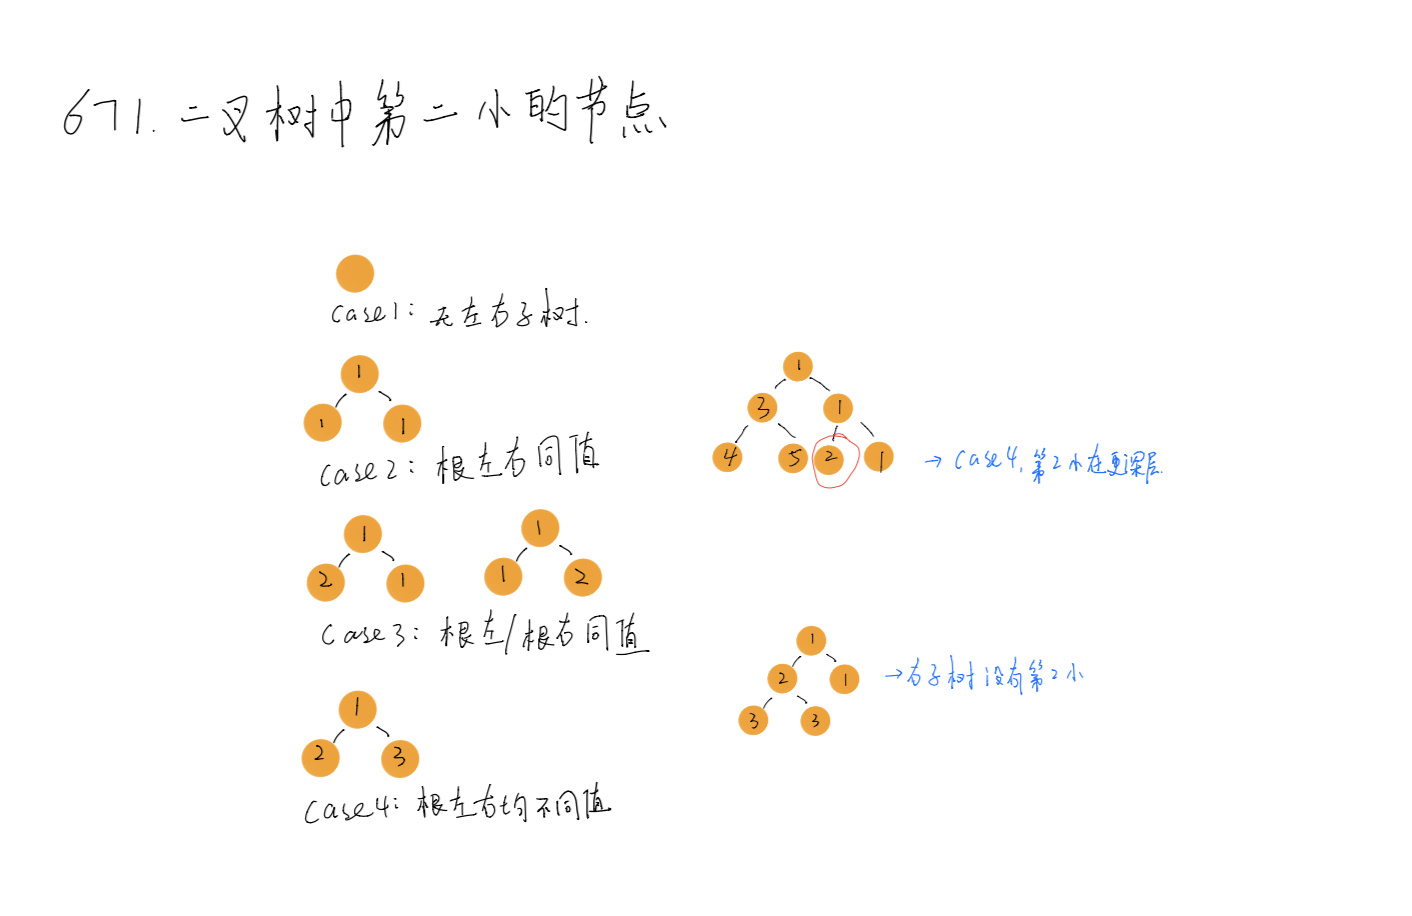 671.二叉树中第二小的节点
case1: 无左右子树.
1
1 1
case2: 根左右同值
1
2 1
1
1 2
case3: 根左/根右同值
1
2 3
case4: 根左右均不同值
1
3 1
4 5 2 1
→ case4, 第2小在更深层
1
2 1
3 3
→右子树没有第2小